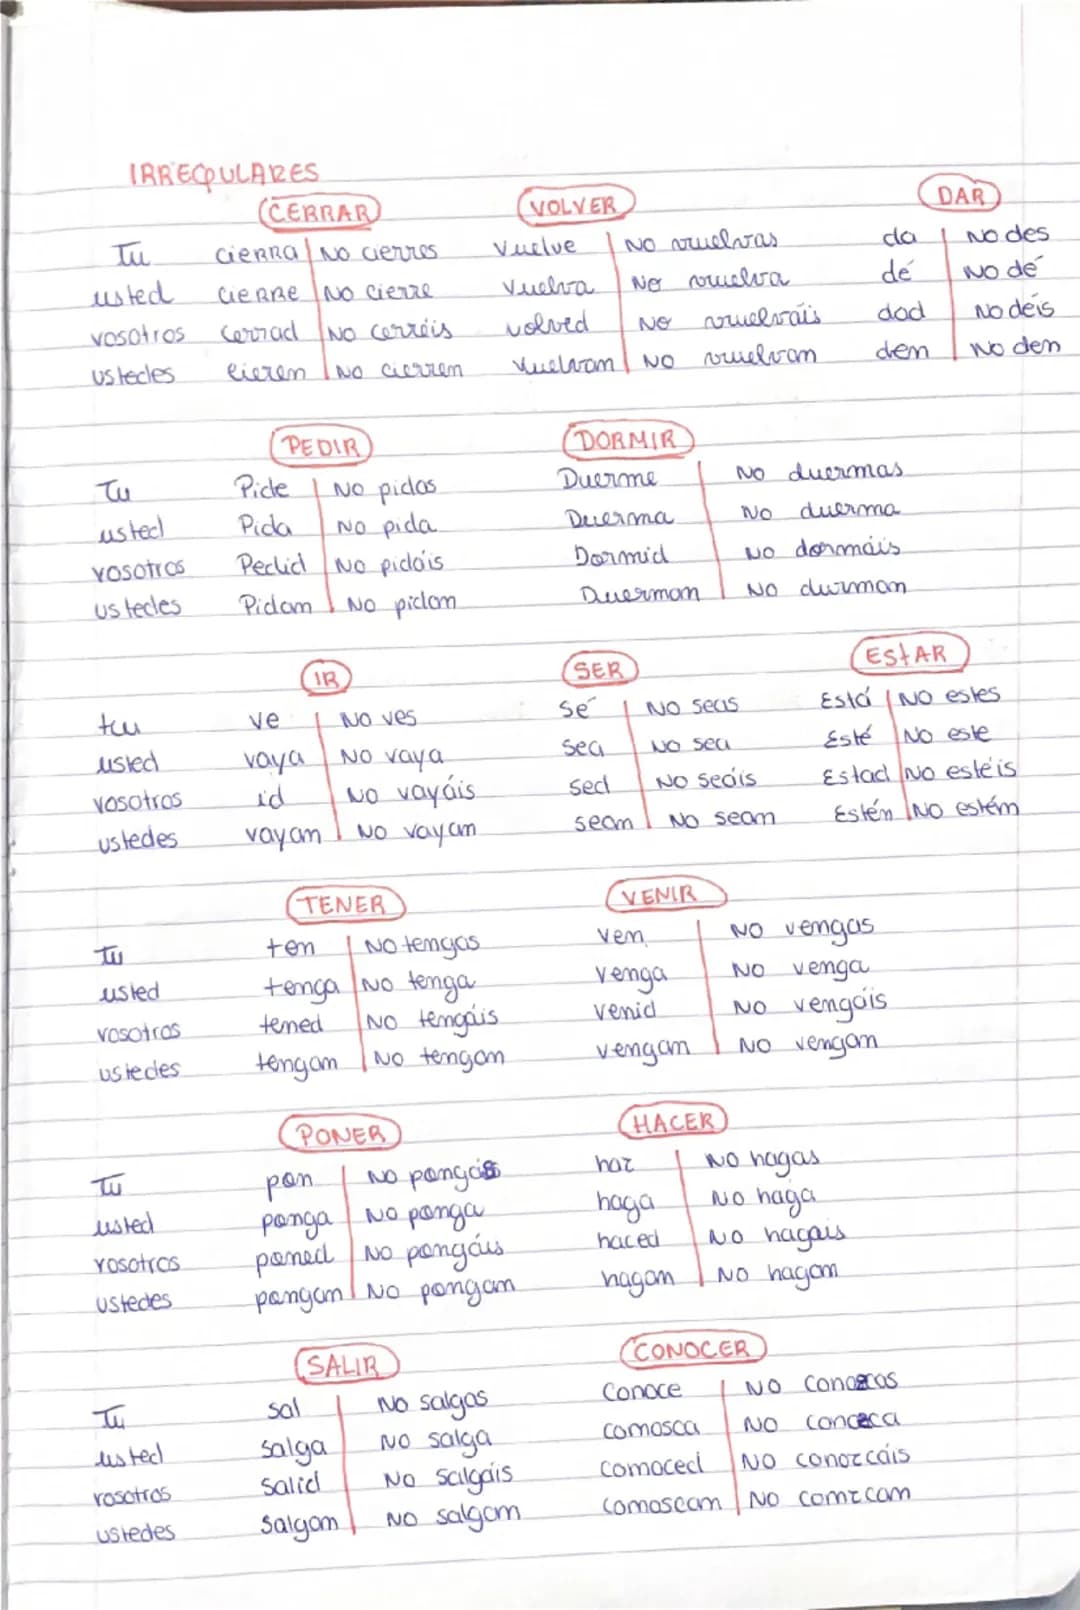 IRREGULARES
CERRAR VOLVER DAR
Tu cierra No cierres Vuelve No vuelvas da No des
usted cierre No cierre Vuelva No vuelva dé No dé
vosotros Cerrad No cerréis volved No vuelvais den dad No déis
ustedes cieren No cierren Vuelvan No vuelvan den No den
PEDIR DORMIR
Tu Pide No pidas Duerme No duermas
usted Pida No pida Duerma No duerma
vosotros Pedid No pidáis Dormid No dormáis
ustedes Pidan No pidan Duerman No durman
IR SER ESTAR
tu ve No ves Sé No seas Está No estes
usted vaya No vaya Sea No sea Esté No este
vosotros id No vayáis sed No seáis Estad No estéis
ustedes vayan No vayan sean No sean Estén No estén
TENER VENIR
Tu ten No tengas Ven No vengas
usted tenga No tenga Venga No venga
vosotros tened No tengáis venid No vengáis
ustedes tengan No tengan vengan No vengan
PONER HACER
Tu pon No pongas haz No hagas
usted ponga No ponga haga No haga
vosotros poned No pongáis haced No hagais
ustedes pongan No pongan hagan No hagan
SALIR CONOCER
Tu sal No salgas Conoce No
usted Salga No salga conosca No
vosotros Salid No Salgáis conoced No conozcáis
ustedes Salgan No salgan conoscan No conzcan